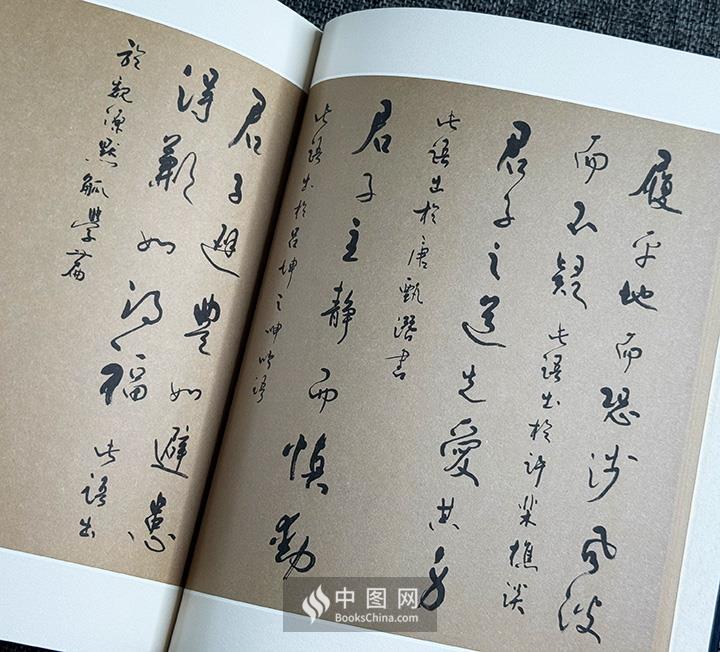 履平地而恐涉風波
而不疑 此語出於許棐樵談
君子之道先愛其身
此語出於唐甄潛書
君子主静而慎動
此語出於呂坤之呻吟語
君子避豐如避患
得歉如得福 此語出
於魏源默觚學篇
中图网
BooksChina.com